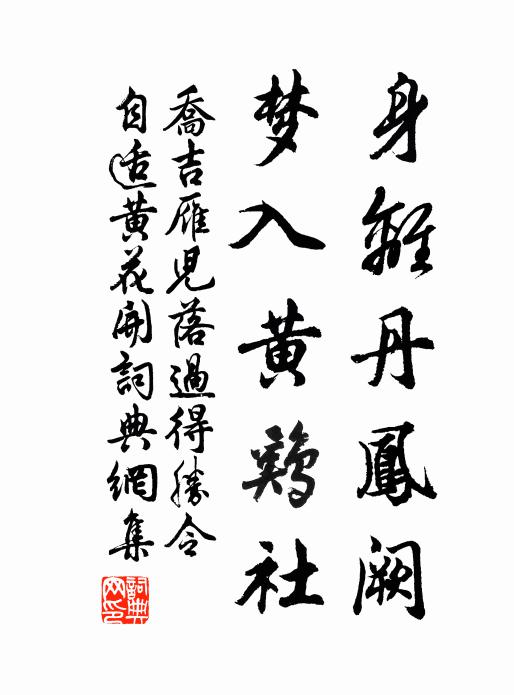 身離丹鳳闕
梦入黄鷄社
喬吉雁児落過得勝令
自适黄花開詞典網集
詞典网印